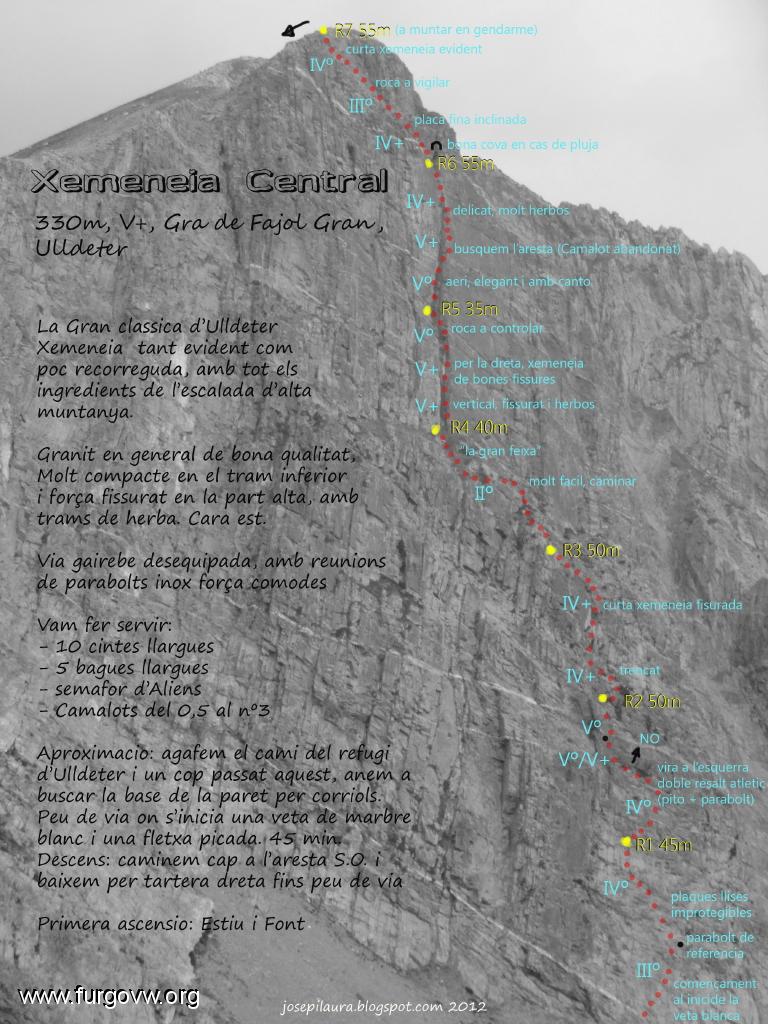 R7 55m (a muntar en gendarme)
curta xemeneia evident
IVº
roca a vigilar
IIIº
placa fina inclinada
IV+
bona cova en cas de pluja
R6 55m
Xemeneia Central
330m, V+, Gra de Fajol Gran,
Ulldeter
IV+
delicat, molt herbos
V+
busquem l'aresta (Camalot abandonat)
Vº
aeri, elegant i amb canto
R5 35m
La Gran classica d'Ulldeter
Xemeneia tant evident com
poc recorreguda, amb tot els
ingredients de l'escalada d'alta
muntanya.
Vº
roca a controlar
V+
per la dreta, xemeneia
de bones fissures
V+
vertical, fissurat i herbos
R4 40m
"la gran feixa"
Granit en general de bona qualitat,
Molt compacte en el tram inferior
i força fissurat en la part alta, amb
trams de herba. Cara est.
IIº
molt facil, caminar
R3 50m
Via gairebe desequipada, amb reunions
de parabolts inox força comodes
IV+
curta xemeneia fisurada
Vam fer servir:
- 10 cintes llargues
- 5 bagues llargues
- semafor d'Aliens
- Camalots del 0,5 al nº3
IV+
trencat
R2 50m
Vº
NO
Vº/V+
vira a l'esquerra
doble resalt atletic
(pito + parabolt)
IVº
Aproximacio: agafem el cami del refugi
d'Ulldeter i un cop passat aquest, anem a
buscar la base de la paret per corriols.
Peu de via on s'inicia una veta de marbre
blanc i una fletxa picada. 45 min.
Descens: caminem cap a l'aresta S.O. i
baixem per tartera dreta fins peu de via
R1 45m
IVº
plaques llises
improtegibles
Primera ascensio: Estiu i Font
parabolt de
referencia
IIIº
començament
al inicide la
veta blanca
www.furgovw.org
josepilaura.blogspot.com 2012